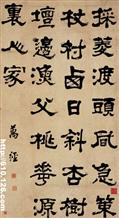 採菱渡頭風急策
杖村西日斜杏樹
壇邊漁父桃華源
裏人家
萬經
http://610.126.com